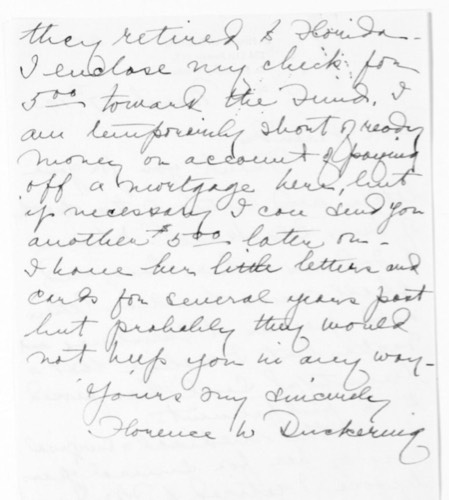 they retired to Florida -
I enclose my check for
5.00 toward the Fund. I
am temporarily short of ready
money on account of paying
off a mortgage here, but
if necessary I can send you
another $5.00 later on -
I have her little letters and
cards for several years past
but probably they would
not help you in any way -
Yours very sincerely
Florence W Duckering